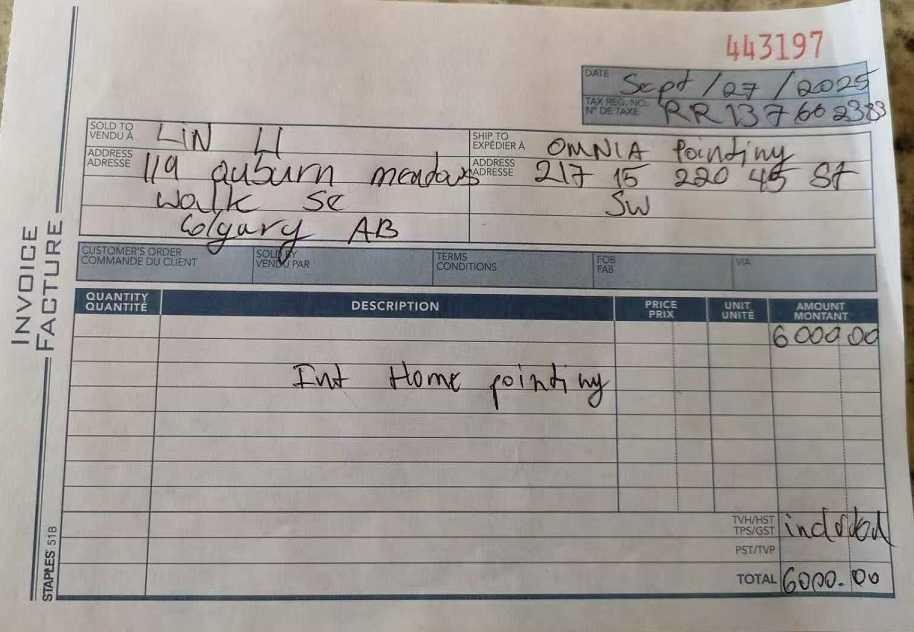 443197
DATE Sept/27/2025
TAX REG. NO.
N° DE TAXE RR 137602383
SOLD TO
VENDU À LIN LI
ADDRESS
ADRESSE 119 auburn meadows
walk SE
Calgary AB
SHIP TO
EXPÉDIER À OMNIA Painting
ADDRESS
ADRESSE 217 15 220 45 St
SW
CUSTOMER'S ORDER
COMMANDE DU CLIENT
SOLD BY
VENDU PAR
TERMS
CONDITIONS
FOB
FAB
VIA
INVOICE
FACTURE
QUANTITY
QUANTITÉ
DESCRIPTION
PRICE
PRIX
UNIT
UNITÉ
AMOUNT
MONTANT
6000.00
Int Home painting
TVH/HST
TPS/GST included
PST/TVP
TOTAL 6000.00
STAPLES 51B